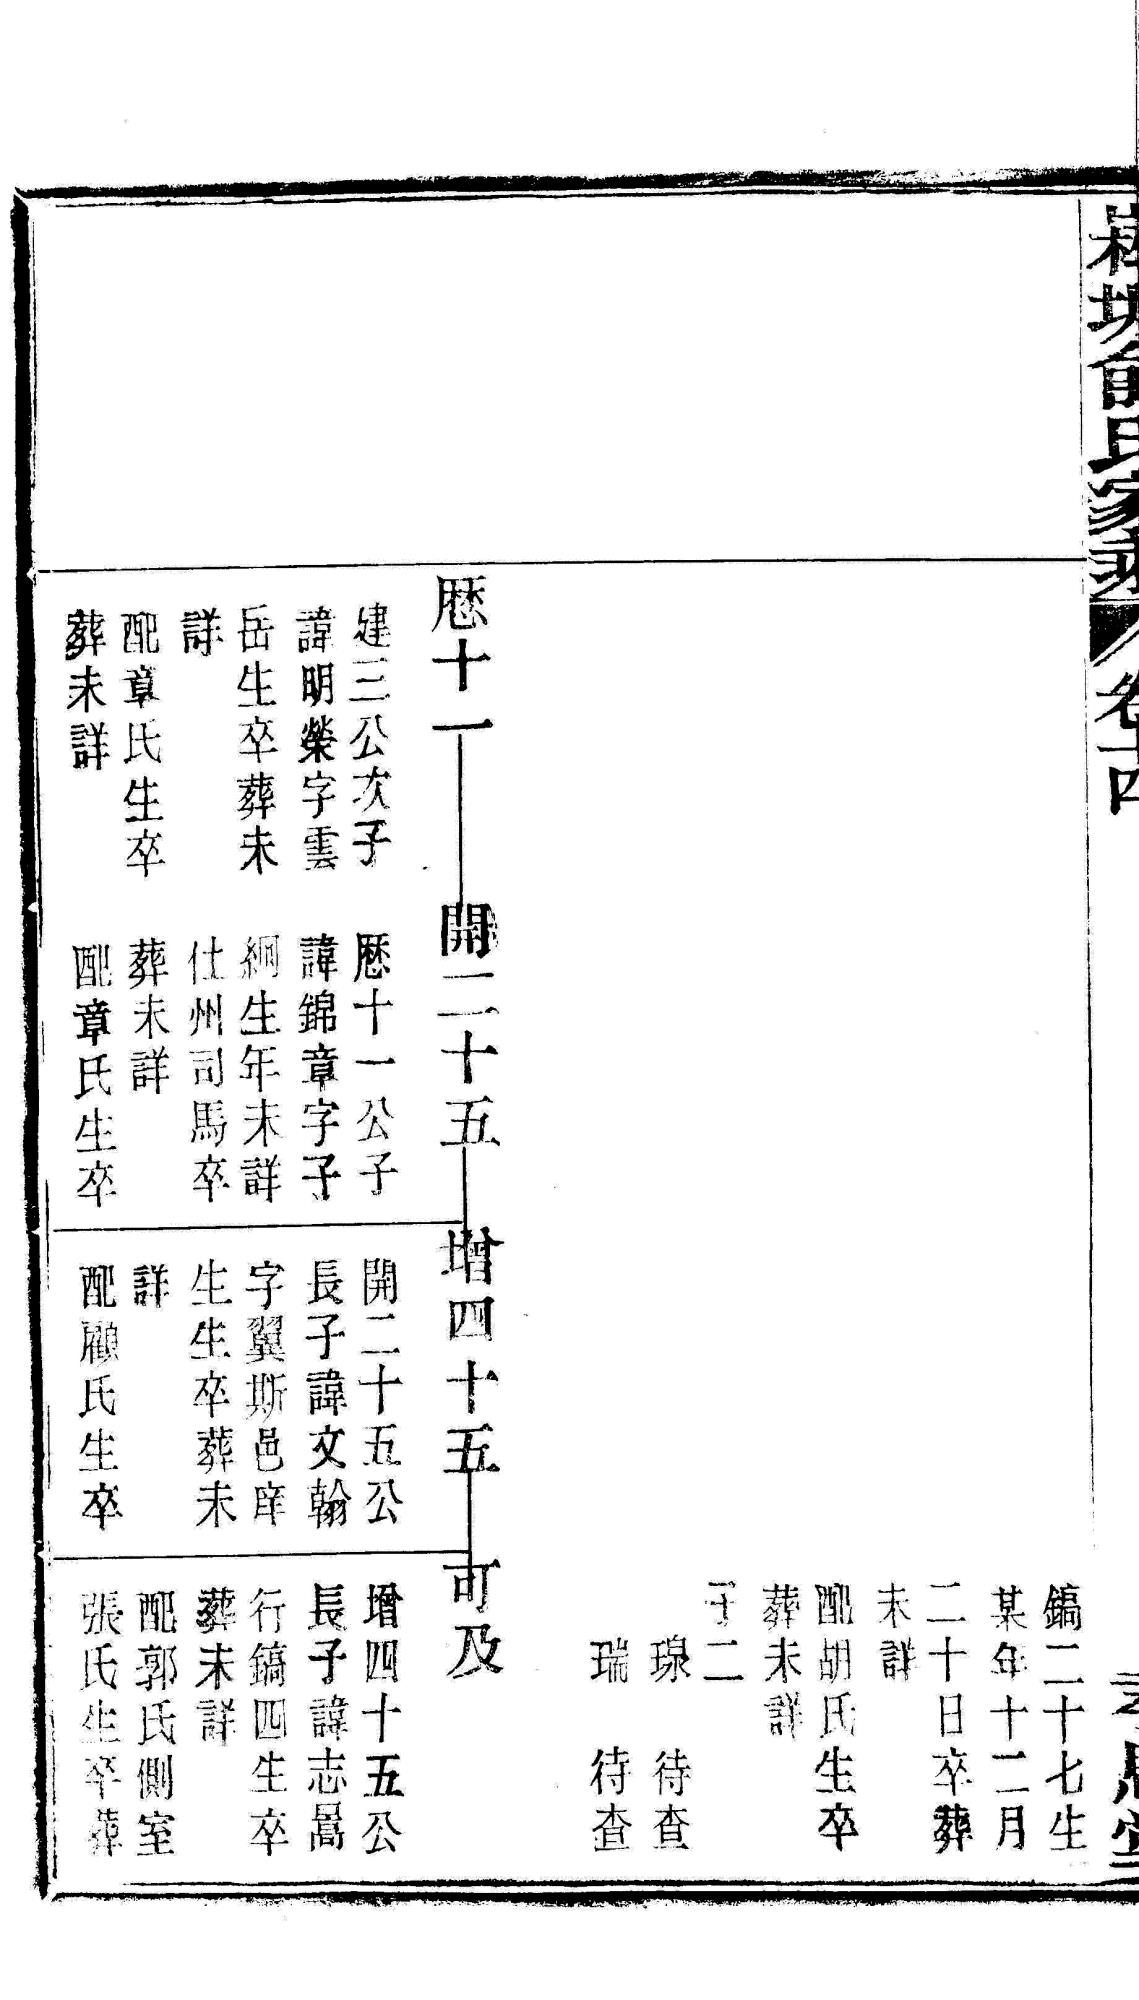 俞氏家乘　卷十四
鎬二十七生
某年十二月
二十日卒葬
未詳
配胡氏生卒
葬未詳
子二
瑔　待查
瑞　待查
暦十一　開二十五　增四十五　可及
建三公次子
諱明榮字雲
岳生卒葬未
詳
配章氏生卒
葬未詳
暦十一公子
諱錦章字子
絅生年未詳
仕州司馬卒
葬未詳
配章氏生卒
開二十五公
長子諱文翰
字翼斯邑庠
生生卒葬未
詳
配顧氏生卒
增四十五公
長子諱志暠
行鎬四生卒
葬未詳
配郭氏側室
張氏生卒葬